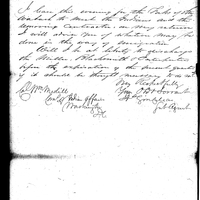 I leave this evening for the Forks of the
Wabash to meet the Indians and the
removing Contractor. On my return
I will advise you of whatever may be
done in the way of emigration
Will I be at liberty to discharge
the Miller, Blacksmith & Interpreter
before the expiration of the present quarter
if it should be thought necessary to do so?
Very Respectfully
Your Obt Servant
Col Wm Medill
Com of Indian Affairs
Washington